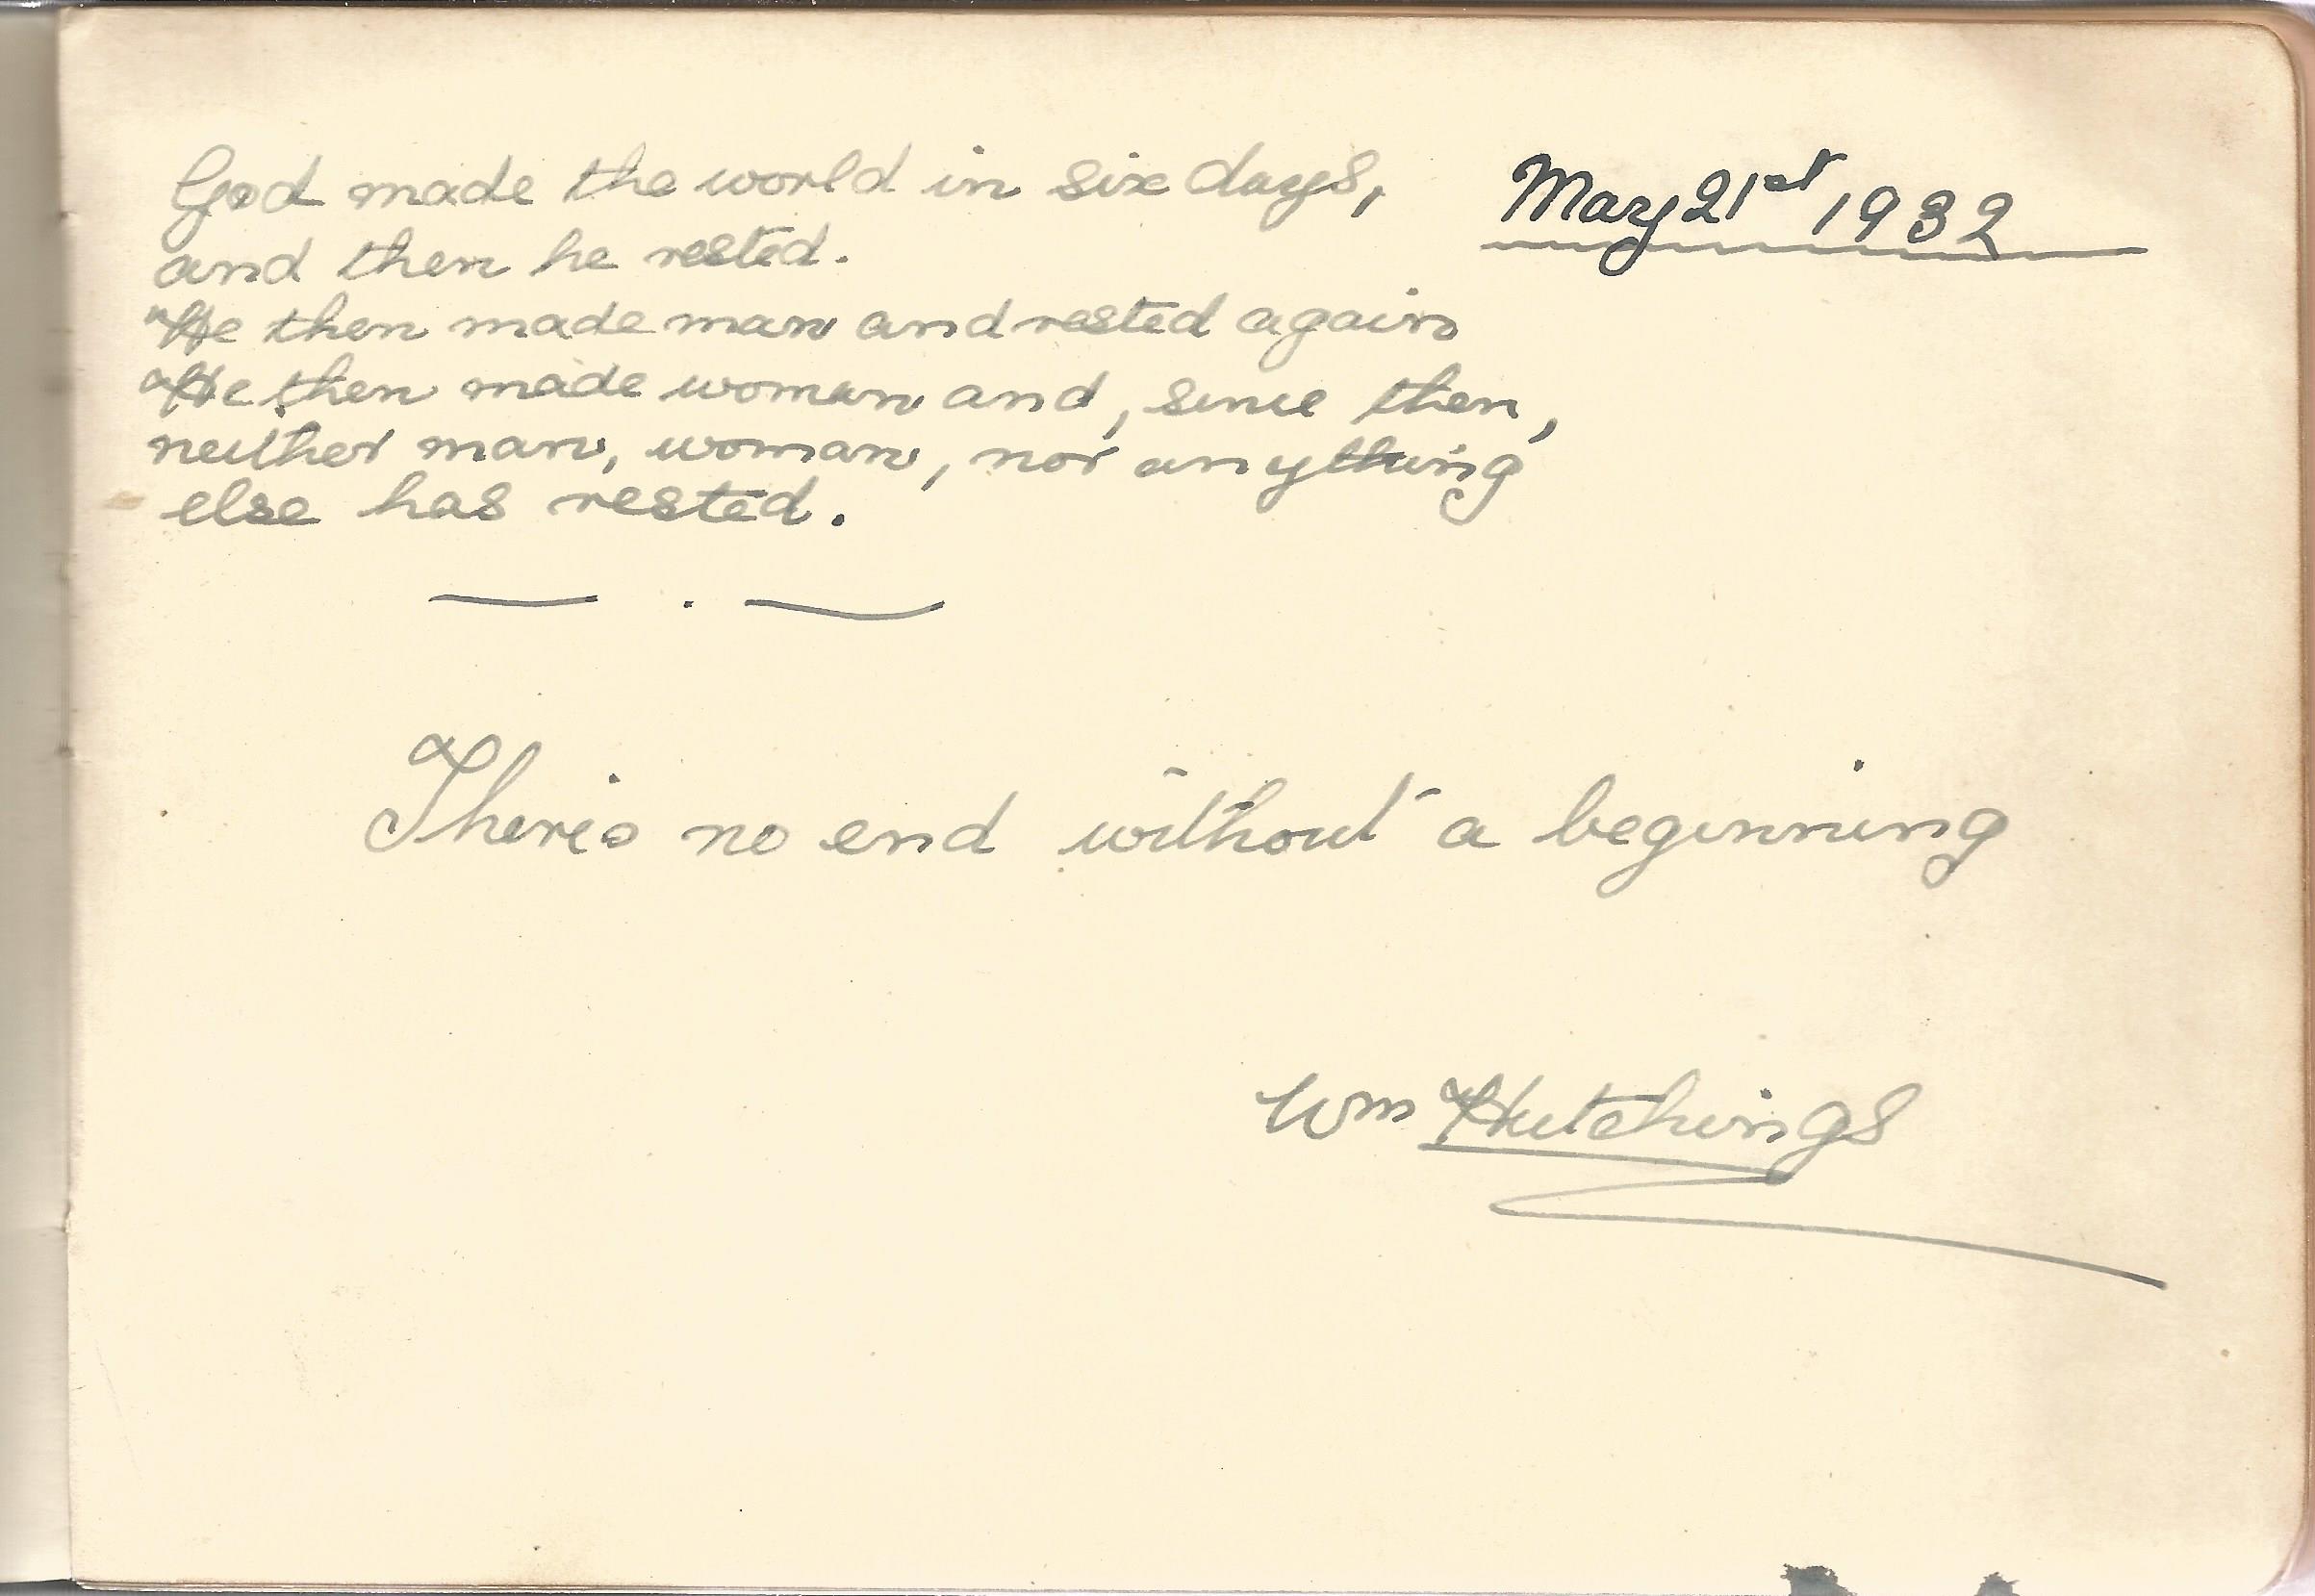 God made the world in six days,
May 21st 1932
and then he rested.
He then made man and rested again
He then made woman and, since then,
neither man, woman, nor anything
else has rested.
There is no end without a beginning
Wm Hutchings